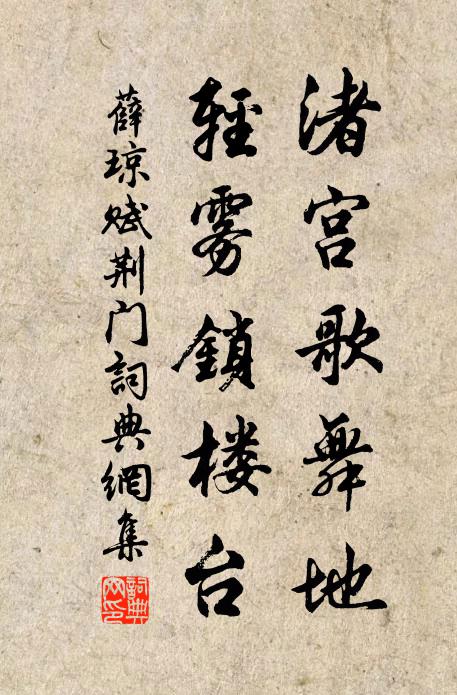 渚宫歌舞地
輕雾鎖楼台
薛琼赋荆门詞典網集
詞典網印